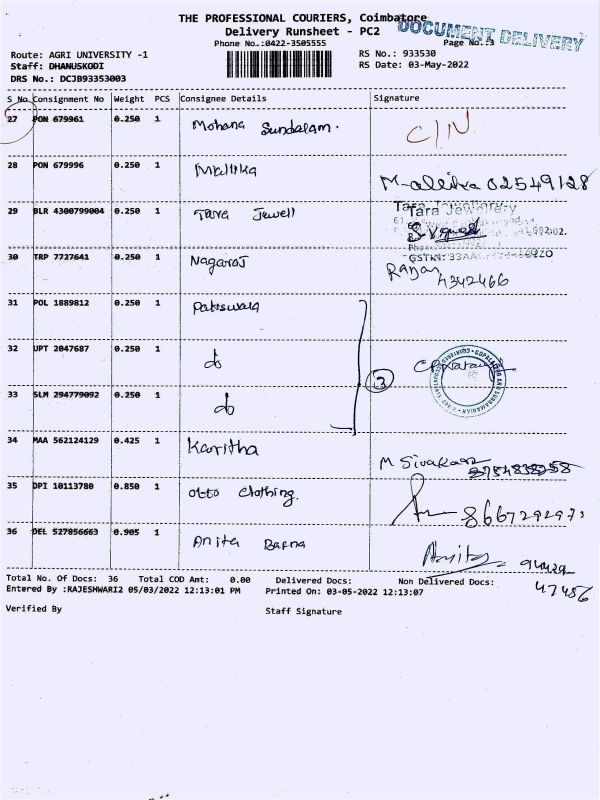 THE PROFESSIONAL COURIERS, Coimbatore
Delivery Runsheet - PC2
DOCUMENT DELIVERY
Phone No.:0422-3505555
Page No.:3
Route: AGRI UNIVERSITY -1
RS No.: 933530
Staff: DHANUSKODI
RS Date: 03-May-2022
DRS No.: DCJB93353003
S No Consignment No Weight PCS Consignee Details Signature
27 PON 679961 0.250 1 Mohana Sundalam. C/N
28 PON 679996 0.250 1 Mallika 02549128
29 BLR 4300799004 0.250 1 Tara Jewell Tara Jewellery
30 TRP 7727641 0.250 1 Nagaraj Rajan 4342466
31 POL 1889812 0.250 1
32 UPT 2047687 0.250 1 do
3
33 SLM 294779092 0.250 1 do
34 MAA 562124129 0.425 1 Karitha M Sivakaar
35 DPI 10113780 0.850 1 Otto Clothing.
36 DEL 527856663 0.905 1 Anita Barna Anita
47456
Total No. Of Docs: 36 Total COD Amt: 0.00 Delivered Docs: Non Delivered Docs:
Entered By :RAJESHWARI2 05/03/2022 12:13:01 PM Printed On: 03-05-2022 12:13:07
Verified By Staff Signature